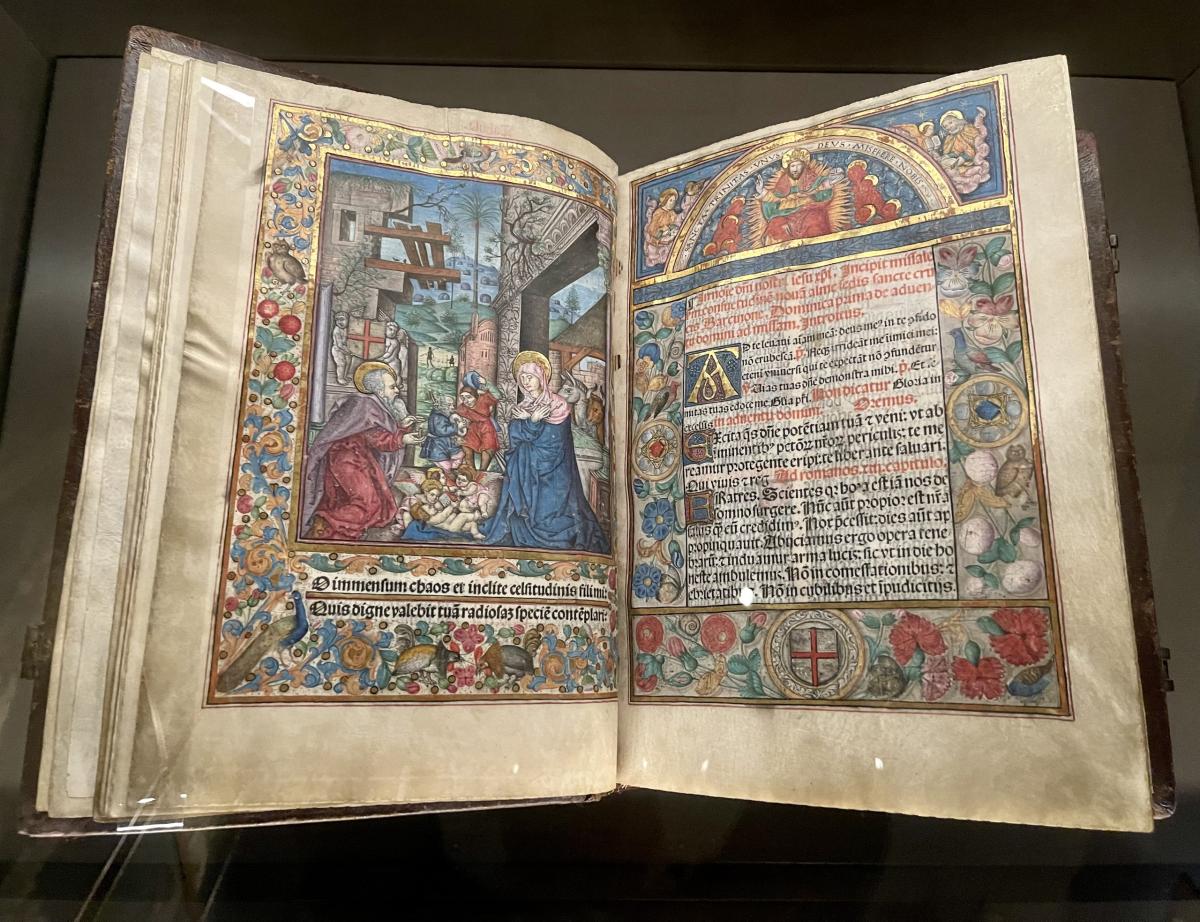 O immensum chaos et inclite celsitudinis filimi:
Quis digne valebit tuã radiosaz speciẽ contẽplari:
SANCTA TRINITAS VNVS DEVS MISERERE NOBIS
nomĩe dñi nostri iesu xp̃i. Incipit missale
cõsuetudinẽ nouã alme sedis sancte cru
cis Barcinoñ. Dominica prima de aduen
tu domini ad missam. Introitus.
AD te leuaui aĩam meã: deus meꝰ in te ꝯfido
nõ erubescã. neqꝫ irrideãt me inimici mei:
etenĩ vniuersi qui te expectãt nõ ꝯfundẽtur
Vias tuas dñe demonstra mihi. p̃. Et se
mitas tuas edoce me. Gl̃ia pr̃i. Non dicatur Gloria in
excelsis in aduentu domini. Oremus.
EXcita qs̃ dñe potẽtiam tuã ⁊ veni: vt ab
imminentibꝰ pctõꝝ nr̃oꝝ periculis: te me
reamur protegente eripi: te liberante saluari.
Qui viuis ⁊ reg̃. Ad romanos. xiii. capitulo.
FRatres. Scientes qꝛ hora est iã nos de
somno surgere. Nũc aũt propior est nr̃a
salus q̃ cũ credidimꝰ. Nox p̃cessit: dies aũt ap
propinquauit. Abijciamus ergo opera tene
brarũ: ⁊ induamur arma lucis: sic vt in die ho
neste ambulemus. Nõ in comessationibus: ⁊
ebrietatibꝰ. Nõ in cubilibus et ĩpudicitijs.